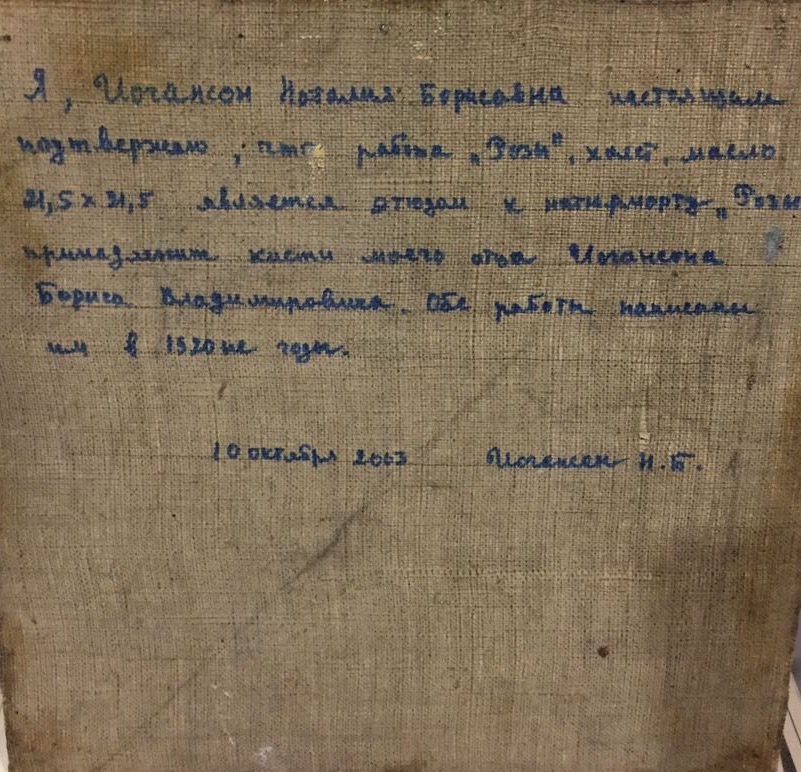 Я, Иогансон Наталия Борисовна настоящим
подтвержаю, что работа „Розы", холст, масло
31,5 х 31,5 является этюдом к натюрморту „Розы
принадлежит кисти моего отца Иогансона
Бориса Владимировича. Обе работы написаны
им в 1920 ые годы.
10 октября 2003 Иогансон Н.Б.